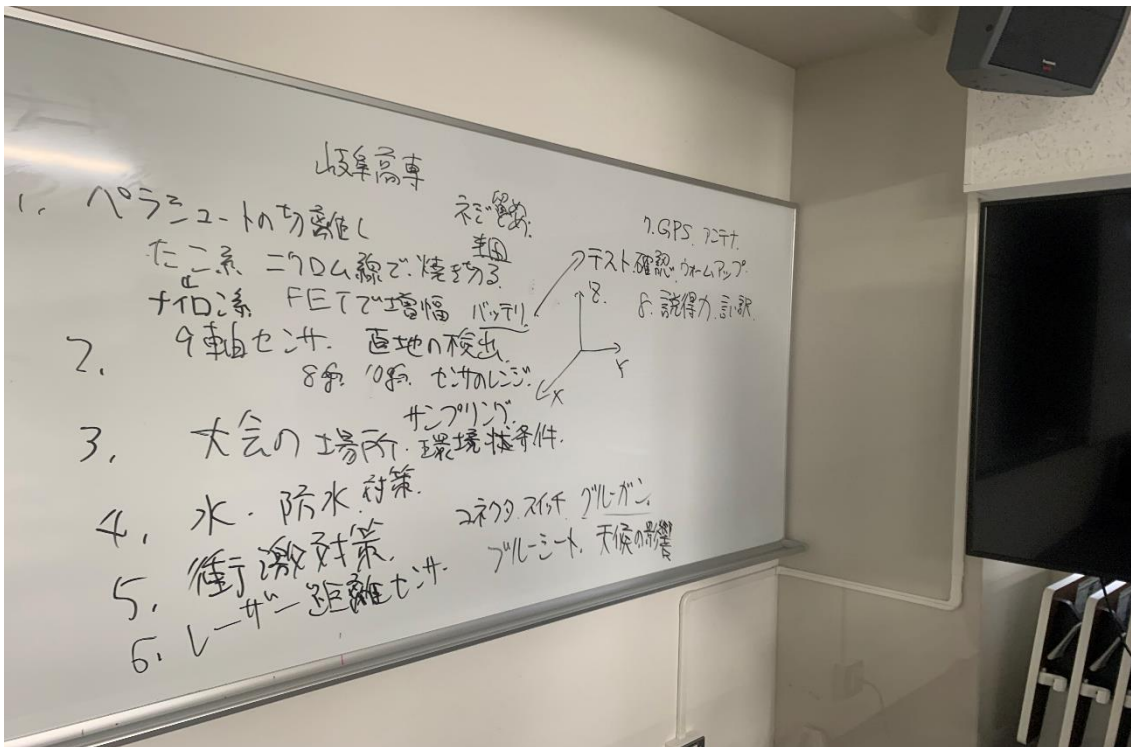 岐阜高専
1. パラシュートの切離し
ネジ留め.
たこ糸 ニクロム線で焼き切る
ナイロン糸 FETで増幅 バッテリ
2. 9軸センサ. 着地の検出
8the 10the センサのレンジ.
サンプリング.
3. 大会の場所. 環境 条件.
4. 水. 防水 対策.
コネクタ スイッチ グルーガン.
5. 衝激対策.
ブルーシート. 天候の影響
6. レーザー距離センサ.
7. GPS. アンテナ.
テスト.確認 ウォームアップ.
8. 説得力. 言い訳
Z
Y
X
Panasonic